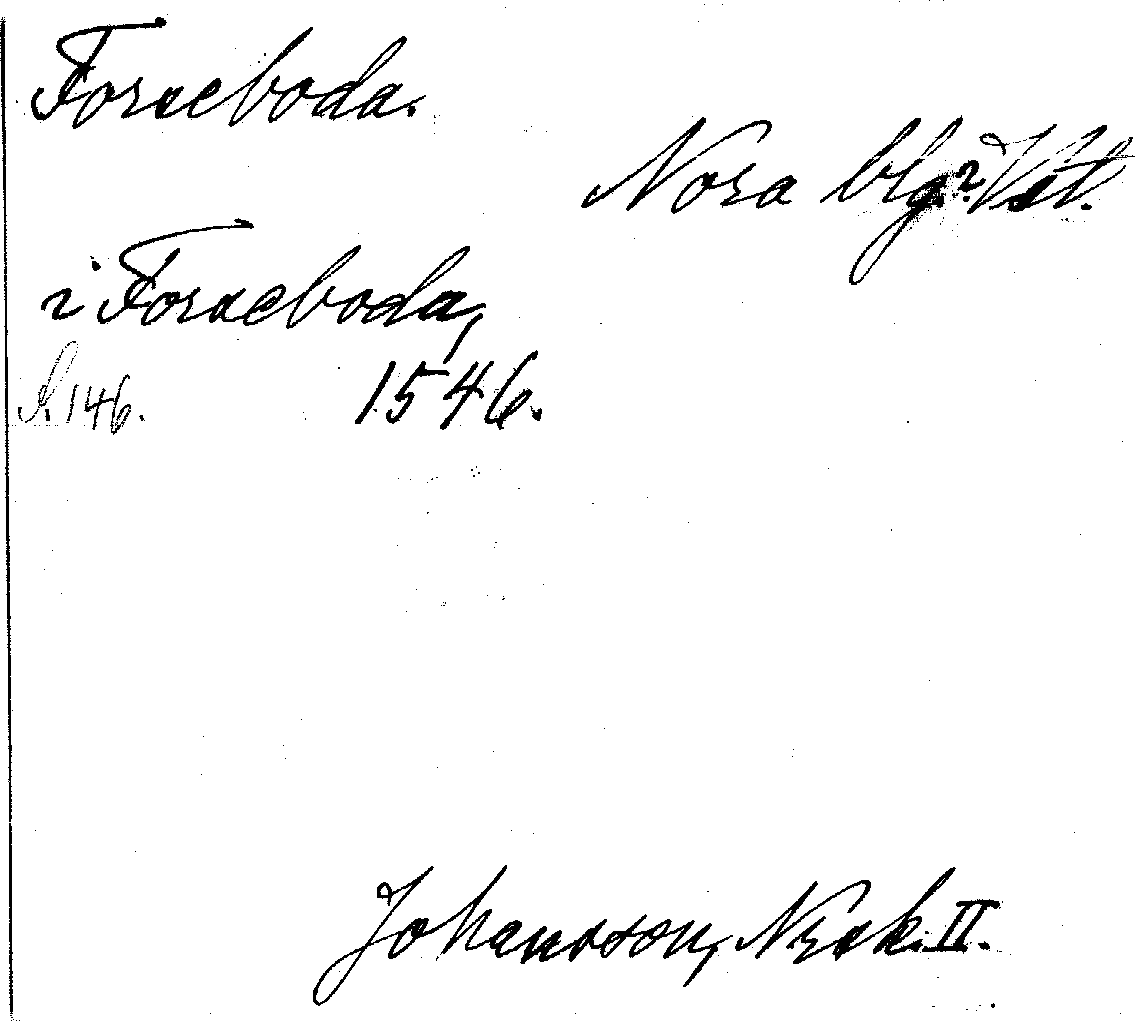 Forseboda.
Nora blg.? Vstl.
i Forseboda,
S. 146. 1546.
Johansson, Nrsk. II.